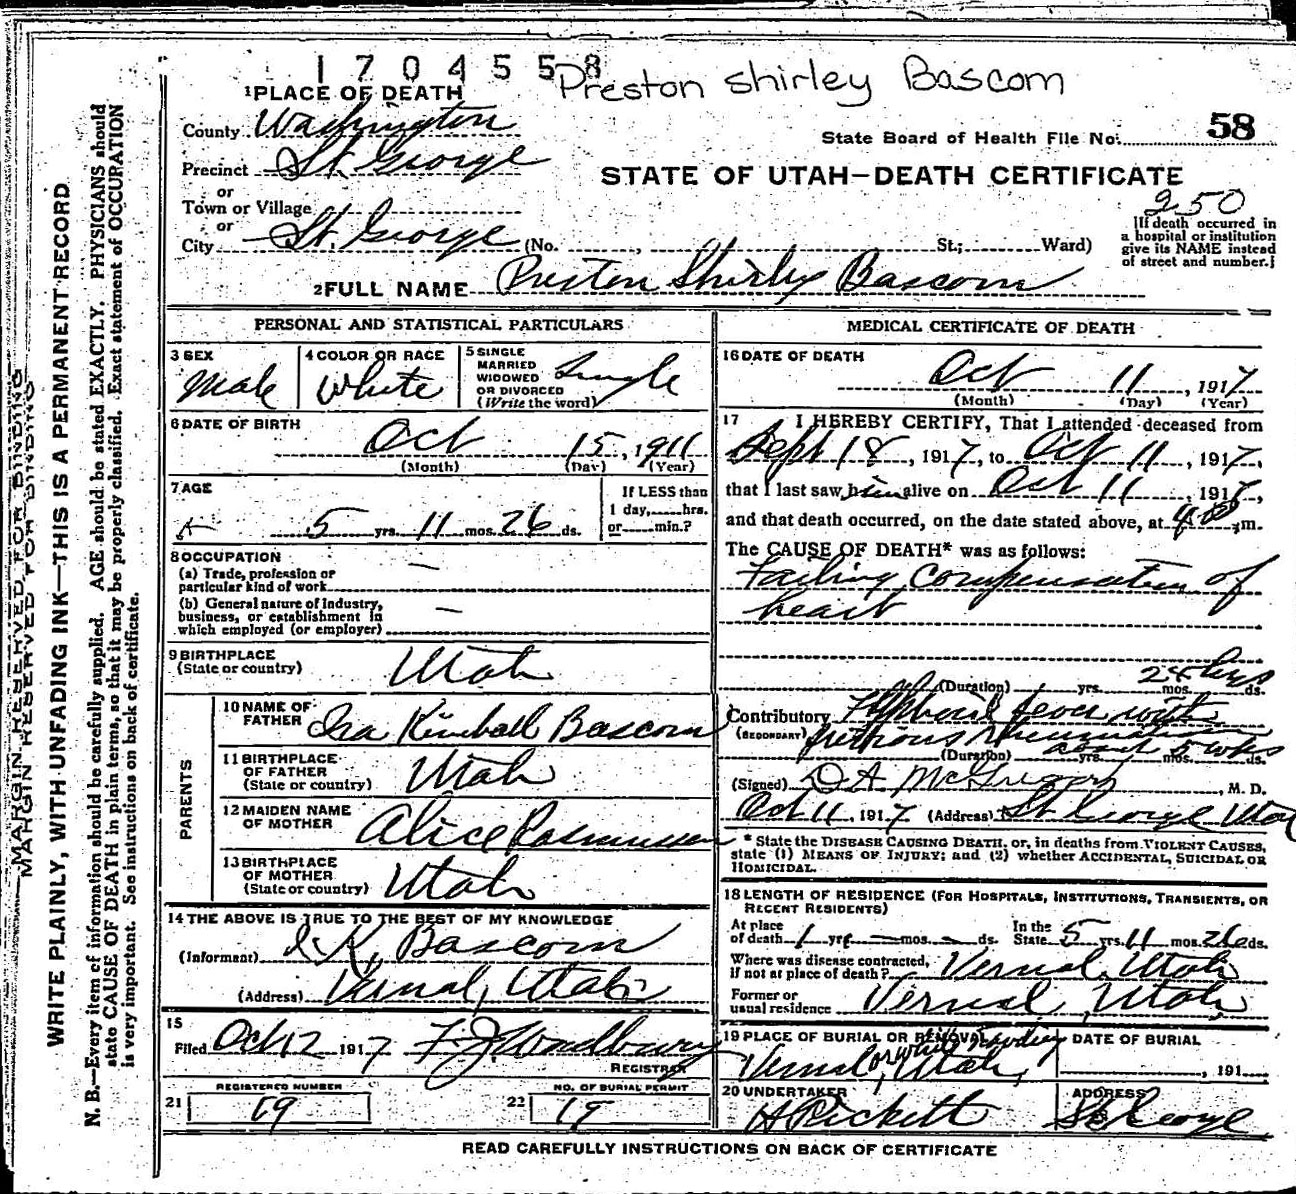 1704558 Preston Shirley Bascom
1 PLACE OF DEATH
County Washington
State Board of Health File No. 58
Precinct St. George
or
STATE OF UTAH—DEATH CERTIFICATE
Town or Village
or
250
City St. George (No. , St.; Ward)
[If death occurred in
a hospital or institution
give its NAME instead
of street and number.]
2 FULL NAME Preston Shirley Bascom
PERSONAL AND STATISTICAL PARTICULARS
3 SEX
Male
4 COLOR OR RACE
White
5 SINGLE
MARRIED
WIDOWED
OR DIVORCED
(Write the word)
Single
6 DATE OF BIRTH
Oct 15, 1911
(Month) (Day) (Year)
7 AGE
5 yrs. 11 mos. 26 ds.
If LESS than
1 day, hrs.
or min.?
8 OCCUPATION
(a) Trade, profession or
particular kind of work —
(b) General nature of industry,
business, or establishment in
which employed (or employer) —
9 BIRTHPLACE
(State or country) Utah
PARENTS
10 NAME OF
FATHER Ira Kimball Bascom
11 BIRTHPLACE
OF FATHER
(State or country) Utah
12 MAIDEN NAME
OF MOTHER Alice Rasmussen
13 BIRTHPLACE
OF MOTHER
(State or country) Utah
14 THE ABOVE IS TRUE TO THE BEST OF MY KNOWLEDGE
(Informant) I. K. Bascom
(Address) Vernal, Utah
15
Filed Oct 12 1917 F J Woodbury
REGISTRAR
REGISTERED NUMBER
21
NO. OF BURIAL PERMIT
22 19
MEDICAL CERTIFICATE OF DEATH
16 DATE OF DEATH
Oct 11, 1917
(Month) (Day) (Year)
17 I HEREBY CERTIFY, That I attended deceased from
Sept 18, 1917, to Oct 11, 1917,
that I last saw him alive on Oct 11, 1917,
and that death occurred, on the date stated above, at m.
The CAUSE OF DEATH* was as follows:
Failing compensation of
heart
(Duration) yrs. mos. ds.
Contributory Typhoid fever with
(SECONDARY) rheumatism
(Duration) about 5 wks yrs. mos. ds.
(Signed) D A McGregor, M. D.
Oct 11, 1917 (Address) St George Utah
* State the DISEASE CAUSING DEATH, or, in deaths from VIOLENT CAUSES,
state (1) MEANS OF INJURY; and (2) whether ACCIDENTAL, SUICIDAL OR
HOMICIDAL.
18 LENGTH OF RESIDENCE (FOR HOSPITALS, INSTITUTIONS, TRANSIENTS, OR
RECENT RESIDENTS)
At place
of death 1 yrs — mos. — ds.
In the
State 5 yrs. 11 mos. 26 ds.
Where was disease contracted,
if not at place of death? Vernal, Utah
Former or
usual residence Vernal, Utah
19 PLACE OF BURIAL OR REMOVAL
Vernal, Utah,
DATE OF BURIAL
, 191
20 UNDERTAKER
A Pickett
ADDRESS
St George
READ CAREFULLY INSTRUCTIONS ON BACK OF CERTIFICATE
MARGIN RESERVED FOR BINDING
MARGIN RESERVED FOR BINDING
WRITE PLAINLY, WITH UNFADING INK—THIS IS A PERMANENT RECORD
N. B.—Every item of information should be carefully supplied. AGE should be stated EXACTLY. PHYSICIANS should
state CAUSE OF DEATH in plain terms, so that it may be properly classified. Exact statement of OCCUPATION
is very important. See instructions on back of certificate.